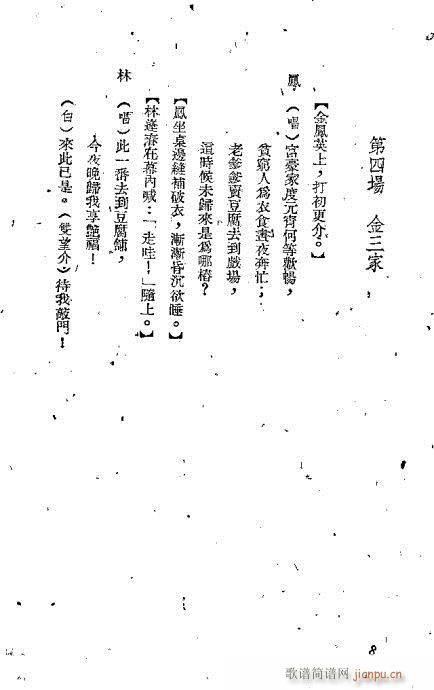 第四場　金三家
【金鳳英上，打初更介。】
鳳（唱）富豪家度元宵何等歡暢，
貧窮人為衣食晝夜奔忙；
老爹爹賣豆腐去到戲場，
這時候未歸來是為哪樁？
【鳳坐桌邊縫補破衣，漸漸昏沉欲睡。】
【林逢濤在幕內喊：「走哇！」隨上。】
林（唱）此一番去到豆腐舖，
今夜晚歸我享艷福！
（白）來此已是。（雙望介）待我敲門！
8
歌谱简谱网
jianpu.cn